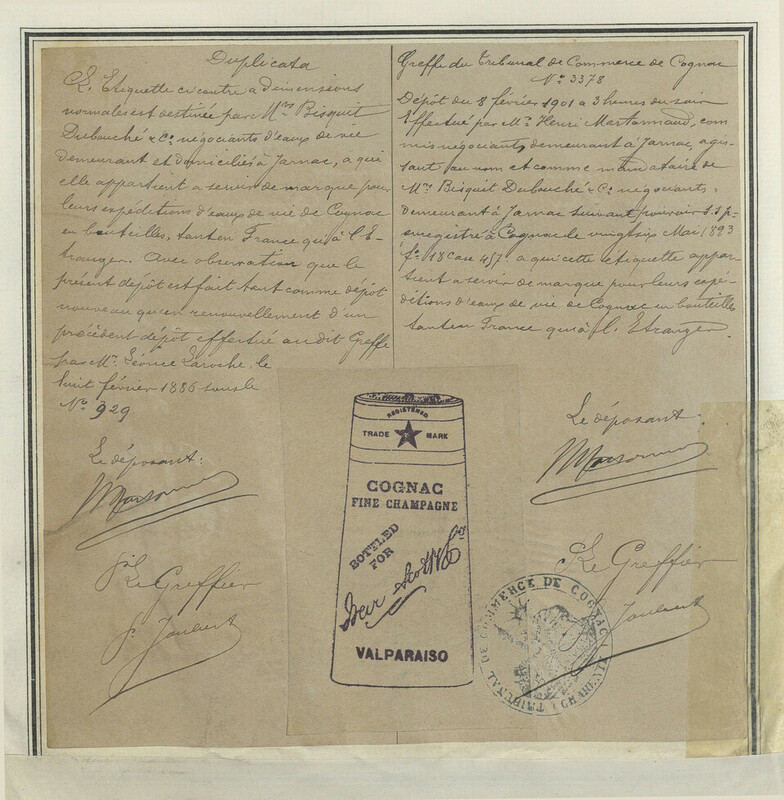 Duplicata
L'Etiquette ci contre a dimensions
normales est destinée par Mrs Bisquit
Dubouché & Cie négociants d'eaux de vie
demeurant et domiciliés à Jarnac, a qui
elle appartient a servir de marque pour
leurs expéditions d'eaux de vie de Cognac
en bouteilles, tant en France qu'à l'E-
tranger. Avec observation que le
présent dépôt est fait tant comme dépôt
nouveau qu'en renouvellement d'un
précédent dépôt effectué au dit Greffe
par Mr. Léonce Laroche, le
huit février 1886 sous le
No 929
Le déposant:
Le Greffier
Greffe du Tribunal de Commerce de Cognac
No 3378
Dépôt du 8 février 1901 a 3 heures du soir
Effectué par Mr. Henri Martonnaud, com
mis négociant, demeurant à Jarnac, agis-
sant au nom et comme mandataire de
Mrs Bisquit Dubouché & Cie négociants,
demeurant à Jarnac suivant pouvoir s.s.p.
enregistré à Cognac le vingt six Mai 1893
fo 18 Case 457 a qui cette etiquette appar-
tient a servir de marque pour leurs expé-
ditions d'eaux de vie de Cognac en bouteilles
tant en France qu'à l'Etranger.
Le déposant.
Le Greffier
REGISTERED
TRADE MARK
COGNAC
FINE CHAMPAGNE
BOTTLED
FOR
Weir Scott & Co
VALPARAISO
TRIBUNAL DE COMMERCE DE COGNAC
(CHARENTE)